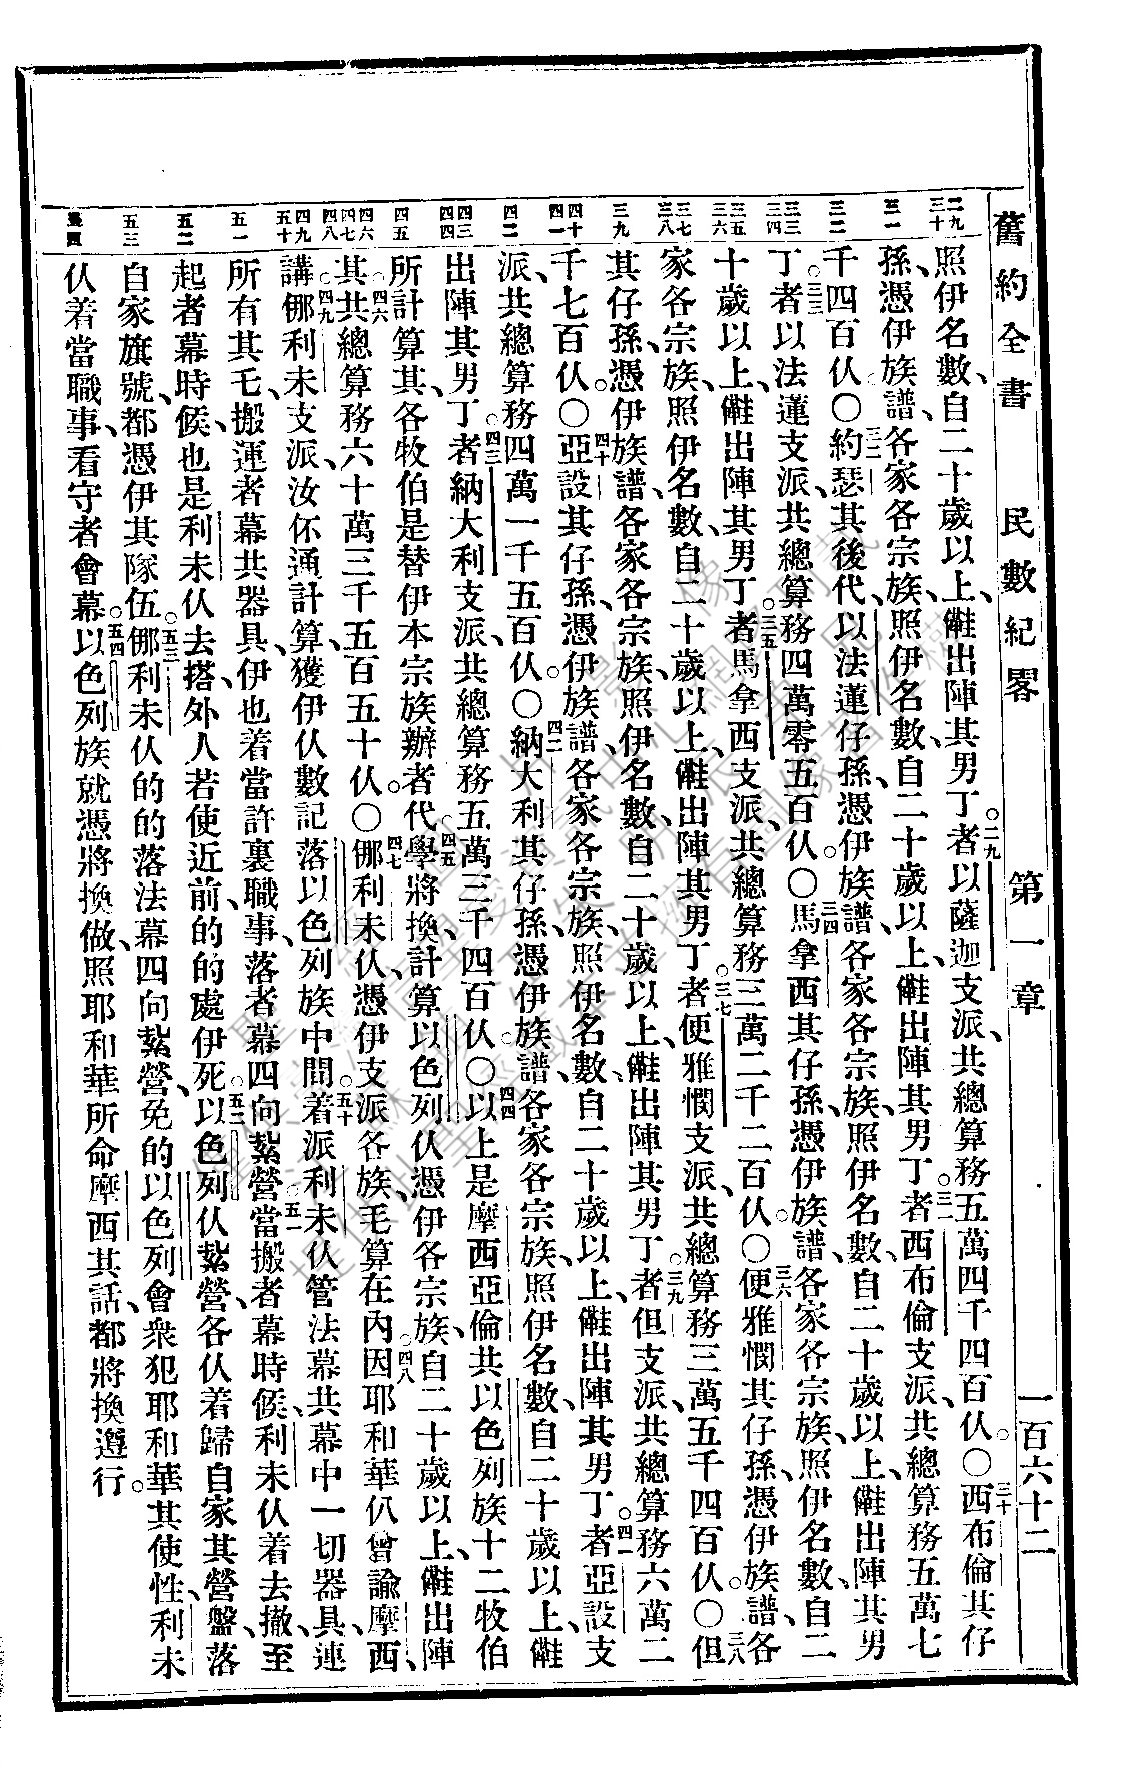 舊約全書　民數紀畧　第一章　一百六十二
二九 三十 三一 三二 三三 三四 三五 三六 三七 三八 三九 四十 四一 四二 四三 四四 四五 四六 四七 四八 四九 五十 五一 五二 五三 五四
照伊名數、自二十歲以上、㑚出陣其男丁者。二九以薩迦支派、共總算務五萬四千四百仈。〇三十西布倫其仔
孫、憑伊族譜、各家各宗族、照伊名數、自二十歲以上、㑚出陣其男丁者。三一西布倫支派、共總算務五萬七
千四百仈。〇三二約瑟其後代、以法蓮仔孫、憑伊族譜、各家各宗族、照伊名數、自二十歲以上、㑚出陣其男
丁者。三三以法蓮支派、共總算務四萬零五百仈。〇三四馬拿西其仔孫、憑伊族譜、各家各宗族、照伊名數、自二
十歲以上、㑚出陣其男丁者。三五馬拿西支派、共總算務三萬二千二百仈。〇三六便雅憫其仔孫、憑伊族譜、各
家各宗族、照伊名數、自二十歲以上、㑚出陣其男丁者。三七便雅憫支派、共總算務三萬五千四百仈。〇三八但
其仔孫、憑伊族譜、各家各宗族、照伊名數、自二十歲以上、㑚出陣其男丁者。三九但支派、共總算務六萬二
千七百仈。〇四十亞設其仔孫、憑伊族譜、各家各宗族、照伊名數、自二十歲以上、㑚出陣其男丁者。四一亞設支
派、共總算務四萬一千五百仈。〇四二納大利其仔孫、憑伊族譜、各家各宗族、照伊名數、自二十歲以上、㑚
出陣其男丁者。四三納大利支派、共總算務五萬三千四百仈。〇四四以上是摩西亞倫共以色列族十二牧伯
所計算其、各牧伯是替伊本宗族辦者代。四五學將換、計算以色列仈、憑伊各宗族、自二十歲以上、㑚出陣
其。四六共總算務六十萬三千五百五十仈。〇四七㑚利未仈、憑伊支派各族、毛算在內。四八因耶和華仍曾諭摩西
講、四九㑚利未支派、汝伓通計算、獲伊仈數記落以色列族中間。五十着派利未仈管法幕、共幕中一切器具、連
所有其乇、搬運者幕共器具、伊也着當許裏職事、落者幕四向紮營。五一當搬者幕時候、利未仈着去撤、至
起者幕時候、也是利未仈去搭、外人若使近前的的處伊死。五二以色列仈紮營、各仈着歸自家其營盤、落
自家旗號、都憑伊其隊伍。五三㑚利未仈的的落法幕四向紮營、免的以色列會衆犯耶和華其使性、利未
仈着當職事、看守者會幕。五四以色列族就憑將換做、照耶和華所命摩西其話、都將換遵行。